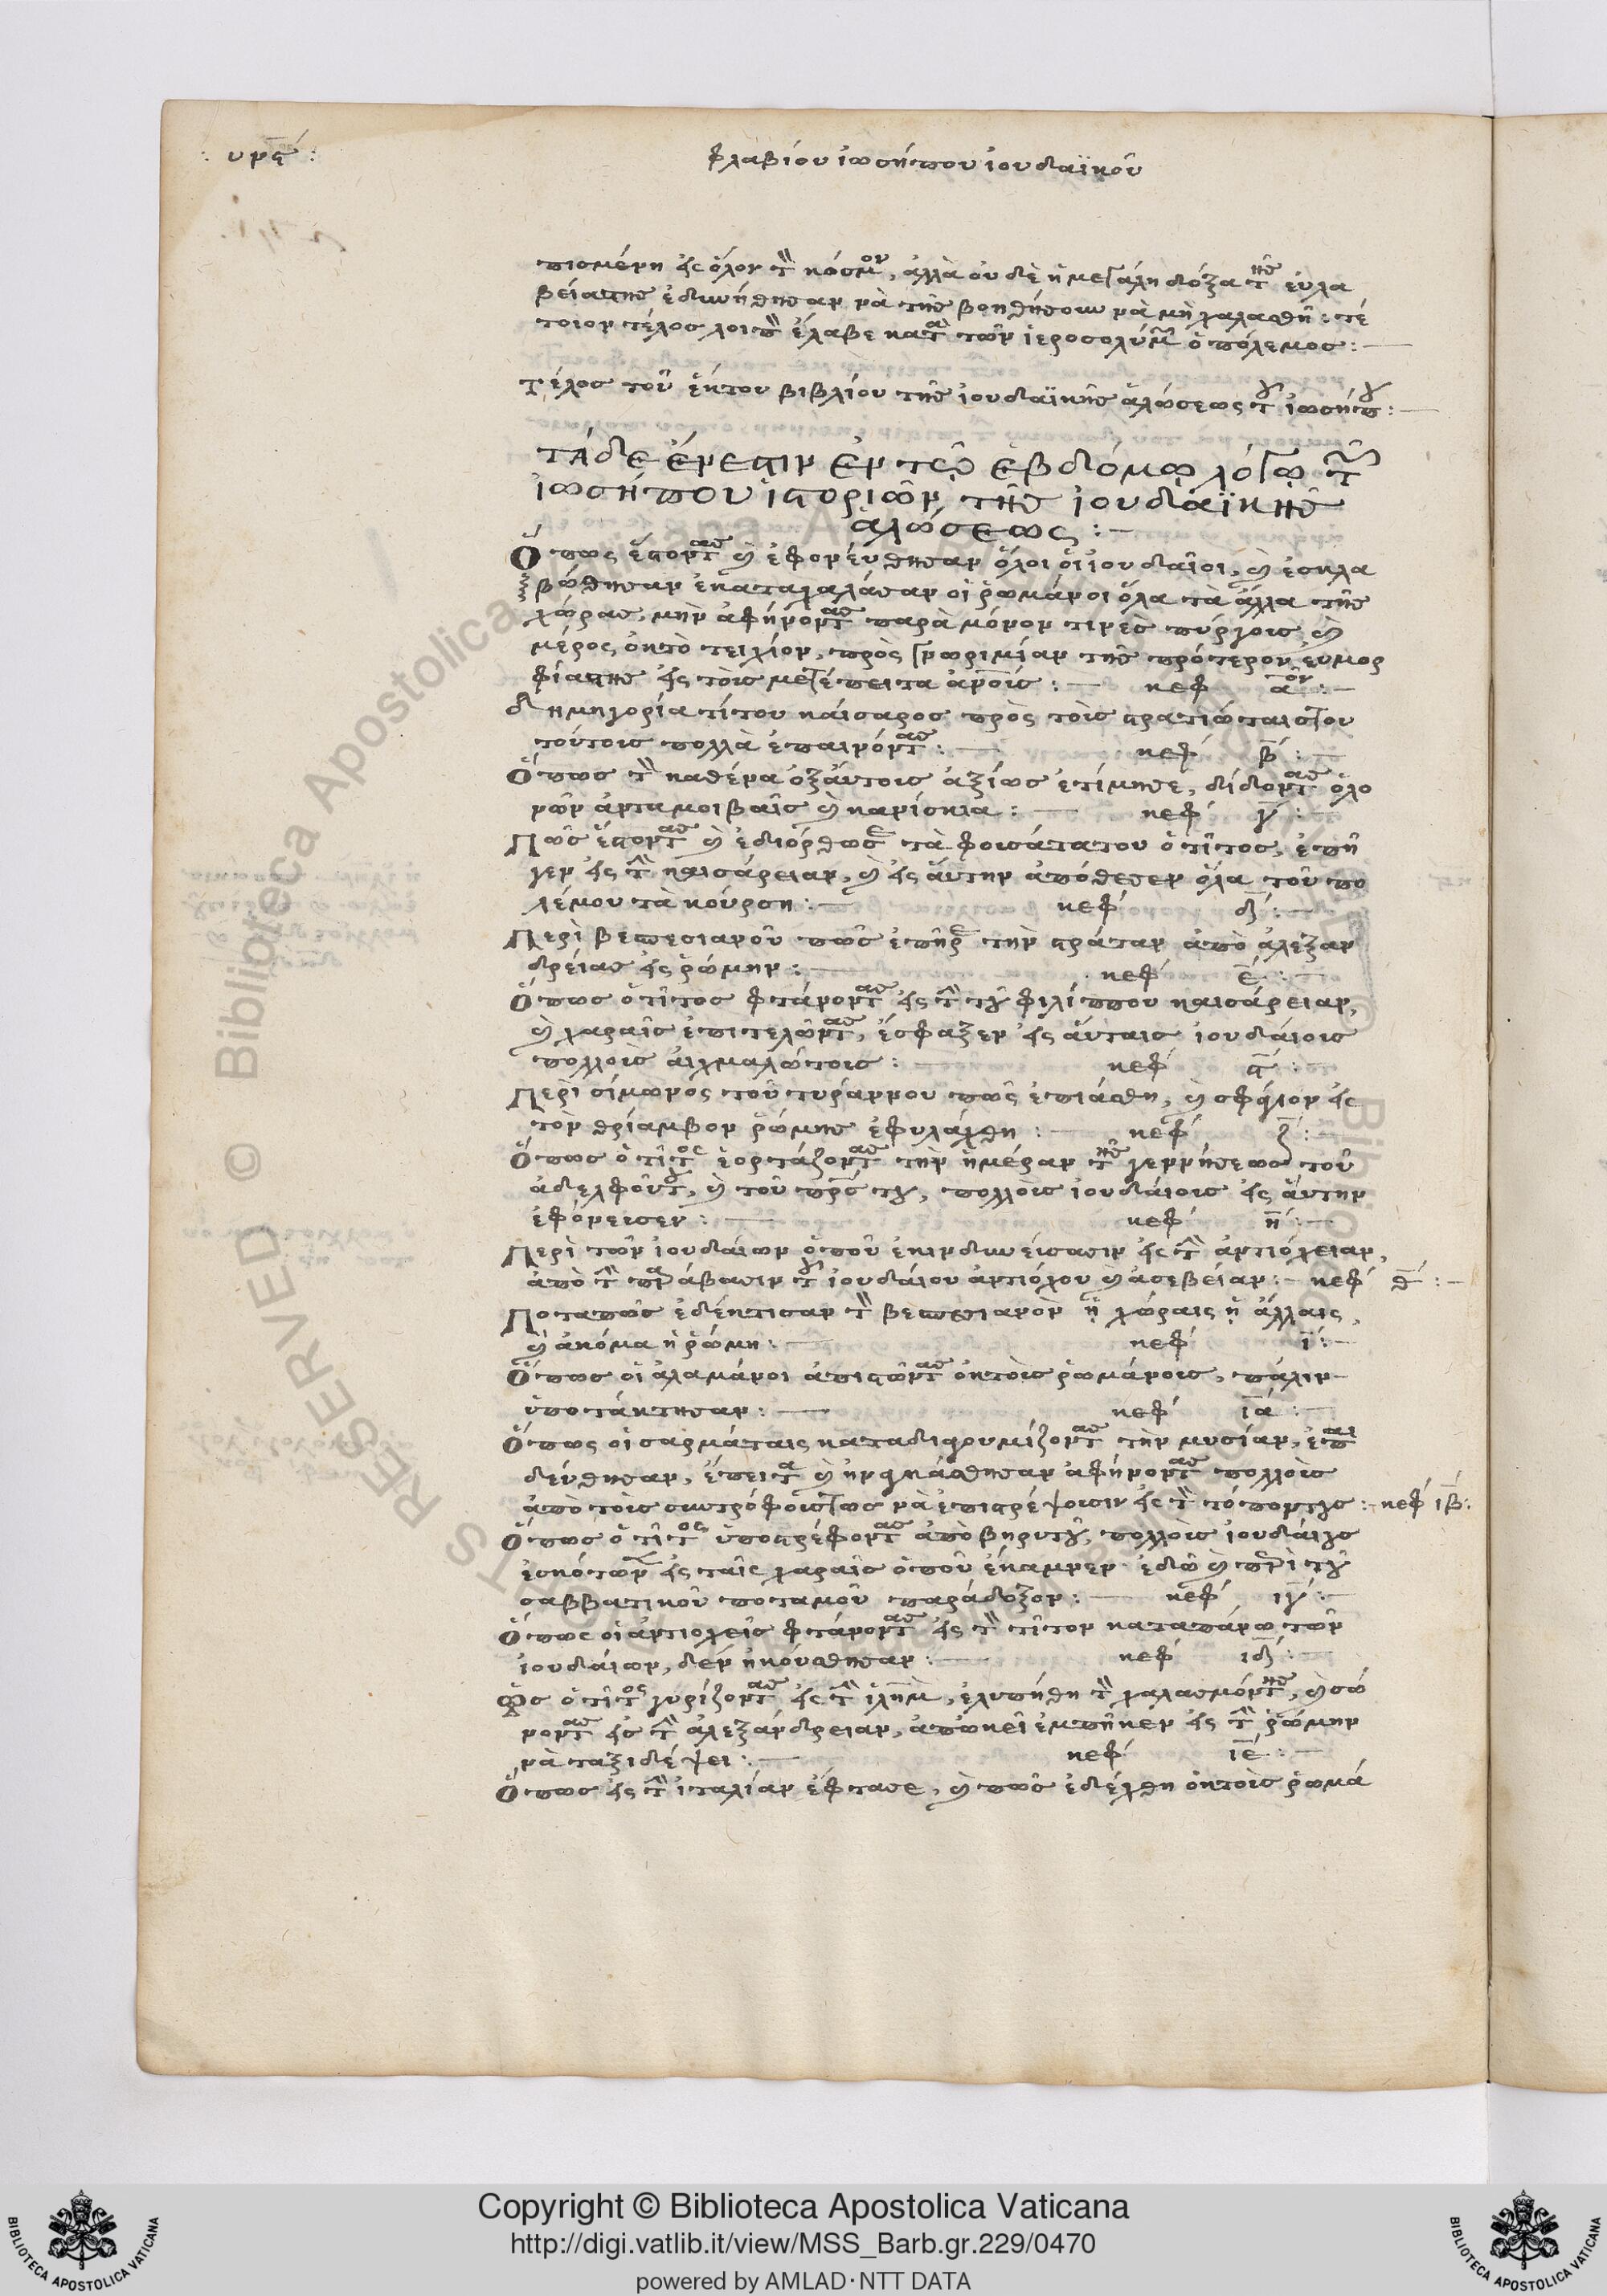 : υνϛ :
φλαβίου ἰωσήπου ἰουδαϊκοῦ
πισμένη εἰς ὅλον τὸν κόσμον, ἀλλὰ οὐδὲ ἡ μεγάλη δόξα τῆς εὐλα
βείας της ἐδυνήθησαν νὰ τῆς βοηθήσουν νὰ μὴ χαλασθῆ: τέ
τοιον τέλος λοιπὸν ἔλαβε κατὰ τῶν ἱεροσολύμων ὁ πόλεμος:—
τέλος τοῦ ἕκτου βιβλίου τῆς ἰουδαϊκῆς ἁλώσεως τοῦ ἰωσήπου:—
τάδε ἔνεστιν ἐν τῷ ἑβδόμῳ λόγῳ τῶν
ἰωσήπου ἱστοριῶν τῆς ἰουδαϊκῆς
ἁλώσεως:—
Ὅπως ἔστοντας καὶ ἐφονεύθησαν ὅλοι οἱ ἰουδαῖοι, καὶ ἐσκλα
βώθησαν ἐκαταχαλάσαν οἱ ῥωμάνοι ὅλα τὰ ἄλλα τῆς
χώρας, μὴν ἀφήνοντας παρὰ μόνον τινὲς πύργοις καὶ
μέρος ὀκτὸ τειχίον, πρὸς γνωριμίαν τῆς πρότερον εὐμορ
φίας της εἰς τοὶς μεγέπειτα ἀνοίς:— κεφ αον:—
δημηγορία τίτου καίσαρος πρὸς τοὶς στρατιώταις του
τούτοις πολλὰ ἐπαινόντας:— κεφ β:—
Ὅπως τὸν καθένα ὀξαὐτοις ἀξίως ἐτίμησε, δίδοντας ὁλο
νῶν ἀνταμοιβαῖς καὶ κανίσκια:— κεφ γ:—
Πῶς ἔστοντας καὶ ἐδιόρθωσε τὰ φοισάτατου ὁ τίτος, ἐπῆ
γεν εἰς τὴν καισάρειαν, καὶ εἰς αὔτην ἀπόθεσεν ὅλα τοῦ πο
λέμου τὰ κούρση:— κεφ δ:—
Περὶ βεσπεσιανοῦ πῶς ἐπῆρε τὴν στράταν ἀπὸ ἀλεξαν
δρείας εἰς ῥώμην:— κεφ ε:—
Ὅπως ὁ τίτος φτάνοντας εἰς τὴν τοῦ φιλίππου καισάρειαν,
καὶ χαραῖς ἐπιτελῶντας, ἔσφαξεν εἰς αὔταις ἰουδαίοις
πολλοὶς αἰχμαλώτοις: κεφ ϛ:
Περὶ σίμωνος τοῦ τυράννου πῶς ἐπιάσθη, καὶ σφάγιον εἰς
τὸν θρίαμβον ῥώμης ἐφυλάχθη:— κεφ ζ:—
Ὅπως ὁ τίτος ἑορτάζοντας τὴν ἡμέραν τῆς γεννήσεως τοῦ
ἀδελφοῦ του, καὶ τοῦ πρς του, πολλοὶς ἰουδαίοις εἰς αὔτην
ἐφόνεισεν:— κεφ η:—
Περὶ τῶν ἰουδαίων ὁποῦ ἐκινδυνείσασιν εἰς τὴν ἀντιόχειαν,
ἀπὸ τὴν παράβασιν τοῦ ἰουδαίου ἀντιόχου καὶ ἀσεβείαν:— κεφ θ:—
Ποταπῶς ἐδέκτισαν τὸν βεσπεσιανὸν ᾗ χώραις ᾗ ἄλλαις,
καὶ ἀκόμα ἡ ῥώμη:— κεφ ι:—
Ὅπως οἱ ἀλαμάνοι ἀπιστῶντας ὀκτοὶς ῥωμάνοις, πάλιν
ὑποτάκτησαν:— κεφ ια:—
Ὅπως οἱ σαρμάταις καταδιαγουμίζοντας τὴν μυσίαν, ἐπαι
δεύθησαν, ἔπειτα καὶ ἠναγκάσθησαν ἀφήνοντας πολλοὶς
ἀπὸ τοὶς συντρόφοις των νὰ ἐπιστρέψοισιν εἰς τὸν τόπον τους:— κεφ ιβ:
Ὅπως ὁ τίτος ὑποστρέφοντας ἀπὸ βηρυτοῦ, πολλοὶς ἰουδαίους
ἐσκότων εἰς ταῖς χαραῖς ὁποῦ ἔκαμνεν· ἐδῶ καὶ περὶ τοῦ
σαββατικοῦ ποταμοῦ παράδοξον:— κεφ ιγ:—
Ὅπως οἱ ἀντιοχεῖς φτάνοντας εἰς τὸν τίτον καταπάνω τῶν
ἰουδαίων, δὲν ἠκούσθησαν:— κεφ ιδ:—
Ὡς ὁ τίτος γυρίζοντας εἰς τὴν ἱλημ, ἐλυπήθη τὸν χαλασμόν της, καὶ σώ
νοντας εἰς τὴν ἀλεξάνδρειαν, ἀπὠκεῖ ἐμπῆκεν εἰς τὴν ῥώμην
νὰ ταξιδέψει:— κεφ ιε:—
Ὅπως εἰς τὴν ἰταλίαν ἔφτασε, καὶ πῶς ἐδέχθη ὀκτοὶς ῥωμά
Copyright © Biblioteca Apostolica Vaticana
http://digi.vatlib.it/view/MSS_Barb.gr.229/0470
powered by AMLAD·NTT DATA